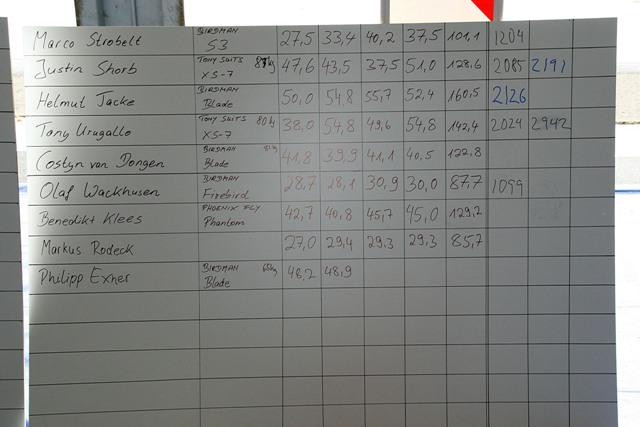 Marco Strobelt BIRDMAN S3 27,5 33,4 40,2 37,5 101,1 1204
Justin Shorb TONY SUITS XS-7 87kg 47,6 43,5 37,5 51,0 128,6 2085 2191
Helmut Jacke BIRDMAN Blade 50,0 54,8 55,7 52,4 160,5 2126
Tony Uragallo TONY SUITS XS-7 80kg 38,0 54,8 49,6 54,8 142,4 2024 2942
Costyn van Dongen BIRDMAN Blade 41,8 39,9 41,1 40,5 122,8
Olaf Wackhusen BIRDMAN Firebird 28,7 28,1 30,9 30,0 87,7 1099
Benedikt Klees PHOENIX FLY Phantom 42,7 40,8 45,7 45,0 129,2
Markus Rodeck 27,0 29,4 29,3 29,3 85,7
Philipp Exner BIRDMAN Blade 65kg 48,2 48,9